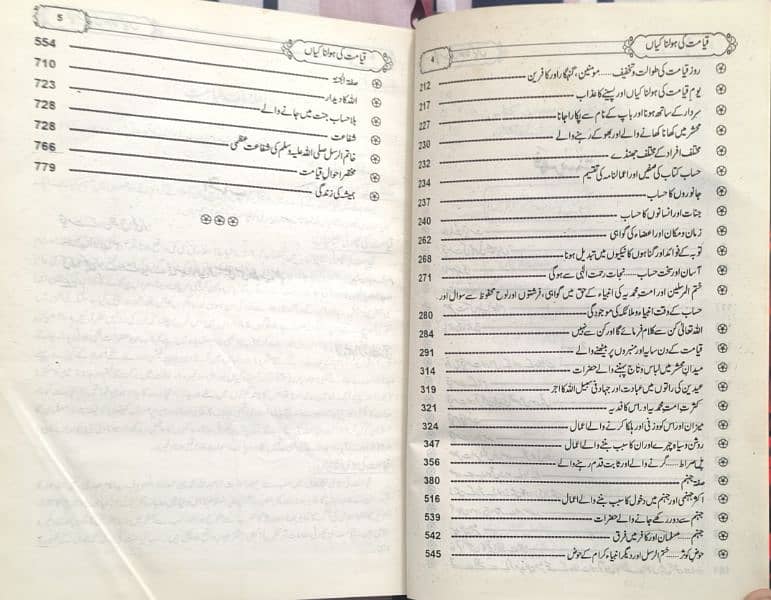 قیامت کی ہولناکیاں
4
روز قیامت کی طوالت و تخفیف ..... مومنین، گنہگار اور کافرین 212
یوم قیامت کی ہولناکیاں اور پسینے کا عذاب 217
سردار کے ساتھ ہونا اور باپ کے نام سے پکارا جانا 227
محشر میں کھانا کھانے والے اور بھوکے رہنے والے 230
مختلف افراد کے مختلف جھنڈے 232
حساب کتاب کی صفیں اور اعمالنامہ کی تقسیم 234
جانوروں کا حساب 237
جنات اور انسانوں کا حساب 240
زمان و مکان اور اعضاء کی گواہی 262
توبہ کے فوائد اور گناہوں کا نیکیوں میں تبدیل ہونا 268
آسان اور سخت حساب ..... نجات رحمت الٰہی سے ہوگی 271
ختم المرسلین اور امت محمدیہ کی انبیاء کے حق میں گواہی، فرشتوں اور لوح محفوظ سے سوال اور
حساب کے وقت انبیاء و ملائکہ کی موجودگی 280
اللہ تعالیٰ کن سے کلام فرمائے گا اور کن سے نہیں 284
قیامت کے دن سایہ اور منبروں پر بیٹھنے والے 291
میدان محشر میں لباس و تاج پہننے والے حضرات 314
عیدین کی راتوں میں عبادت اور جہاد فی سبیل اللہ کا اجر 319
کثرت امت محمدیہ اور اس کا فدیہ 321
میزان اور اس کو وزنی اور ہلکا کرنے والے اعمال 324
روشن و سیاہ چہرے اور ان کا سبب بننے والے اعمال 347
پل صراط ..... گرنے والے اور ثابت قدم رہنے والے 356
صفۃ جہنم 380
اکثر جہنمی اور جہنم میں دخول کا سبب بننے والے اعمال 516
جہنم سے دور رکھے جانے والے حضرات 539
جہنم ..... مسلمان اور کافر میں فرق 542
حوض کوثر ..... ختم الرسل اور دیگر انبیاء کرام کے حوض 545
قیامت کی ہولناکیاں
5
صفۃ الجنۃ 554
اللہ کا دیدار 710
بلا حساب جنت میں جانے والے 723
شفاعت 728
خاتم الرسل صلی اللہ علیہ وسلم کی شفاعت عظمیٰ 728
مختصر احوال قیامت 766
ہمیشہ کی زندگی 779